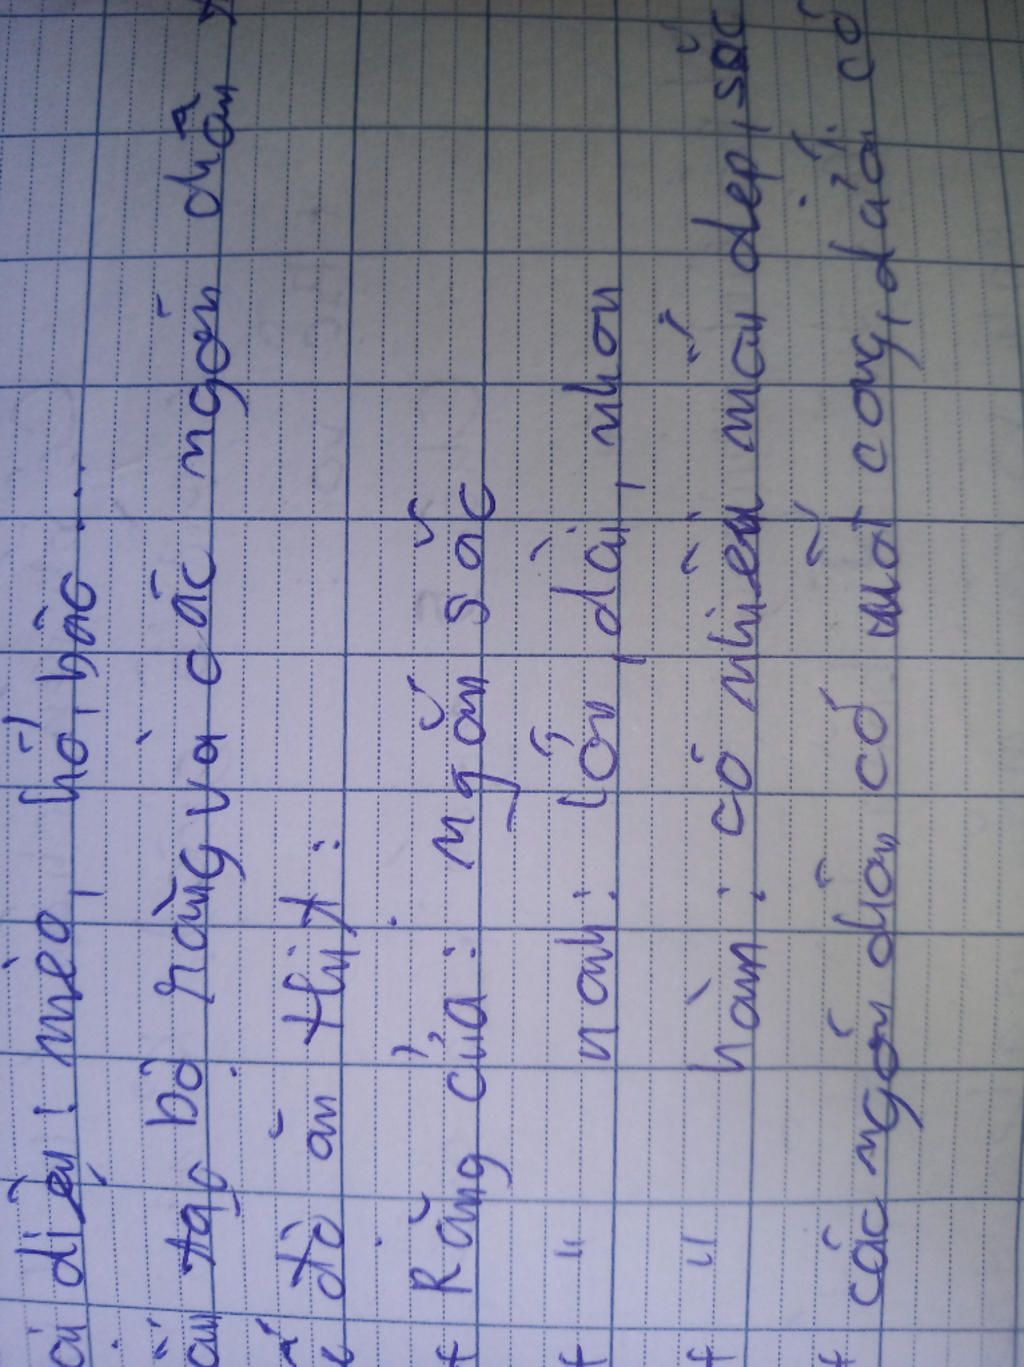 diện: mèo, hổ, báo...
tạo bộ răng và các ngón chân
độ ăn thịt:
+ Răng cửa: ngắn sắc
+ " nanh: lớn, dài, nhọn
+ " hàm: có nhiều mấu dẹp, sắc
+ các ngón chân có vuốt cong, dưới có